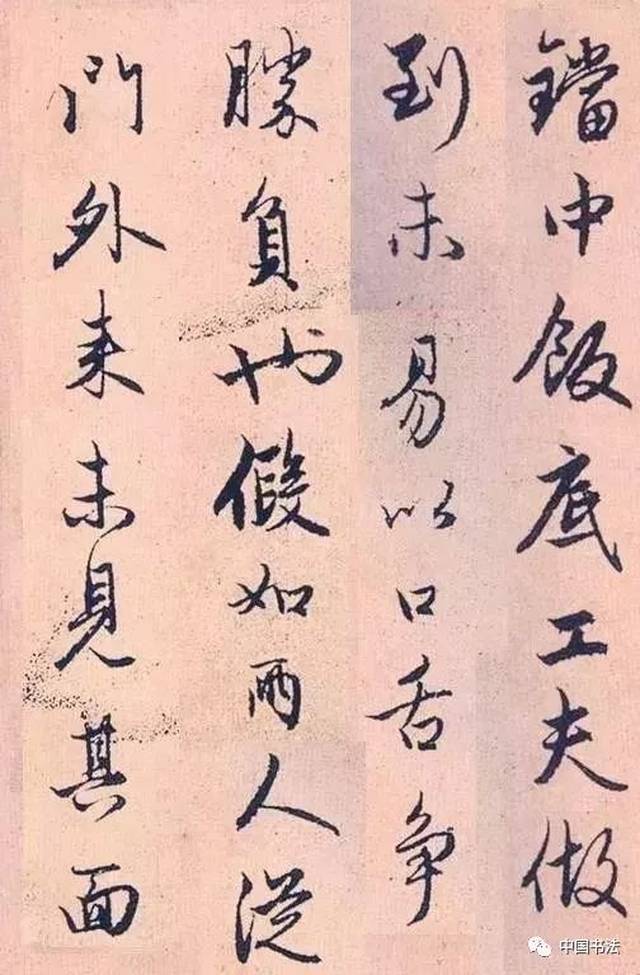 鐺中飯底工夫做
到未易以口舌争
勝負也假如兩人從
門外来未見其面
中国书法